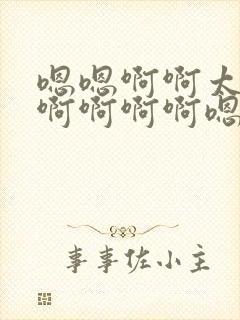 嗯嗯啊啊大
啊啊啊啊嗯
事事佐小主